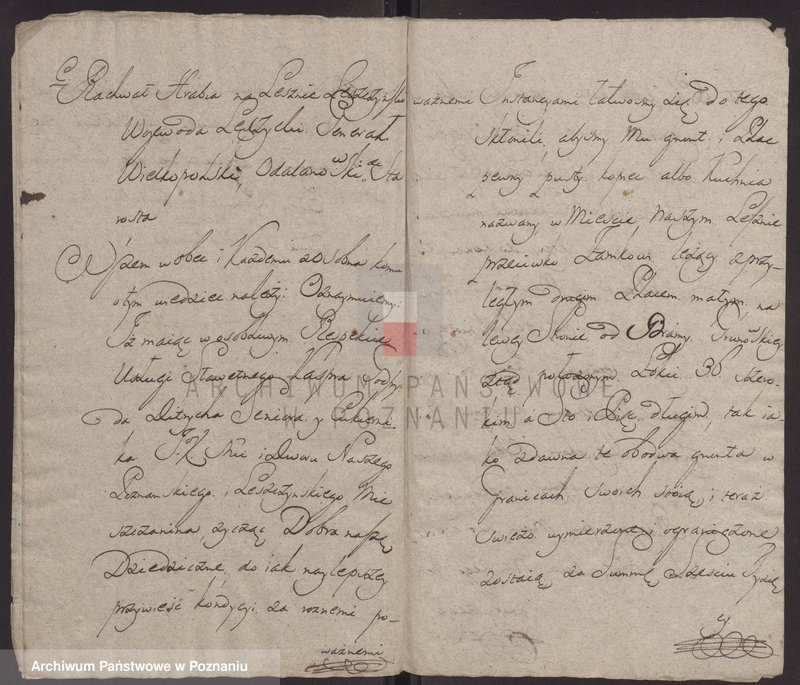 Rachwał Hrabia na Lesznie Leszczyński
Wojewoda Łęczycki, Generał
Wielkopolski, Odalanowski &c. Sta
rosta
Wszem wobec i Każdemu zosobna komu
otym wiedzieć należy. Oznaymuiemy.
Iż maiąc w osobliwym Respekcie
Usługi Sławetnego Kaspra
da Ditrycha Seniora y
ka J. K. Mci i Dworu Naszego
Poznańskiego, i Leszczyńskiego Mie
szczanina, zycząc Dobra nasze
Dziedziczne, do iak naylepszey
przywieść kondycyi, za roznemi po-
ważnemi
ważnemi Instancyami łatwosmy się do tego
skłonili, abysmy Mu grunt i Plac
pewny pusty. kopiec albo Kuchnia
nazwany w Mieście Naszym Lesznie
przeciwko Zamkowi, leżący z przy-
ległym drugim Placem małym, na
lewey stronie od Bramy.
położonym. Łokci 36 szero-
kim a Sto i długim, tak ia-
ko zdawna te obodwa grunta w
Granicach swoich stoią, i teraz
swieżo wymierzone i ograniczone
zostaią za Summę Sześciu Tysię
ARCHIWUM PAŃSTWOWE
W POZNANIU
Archiwum Państwowe w Poznaniu